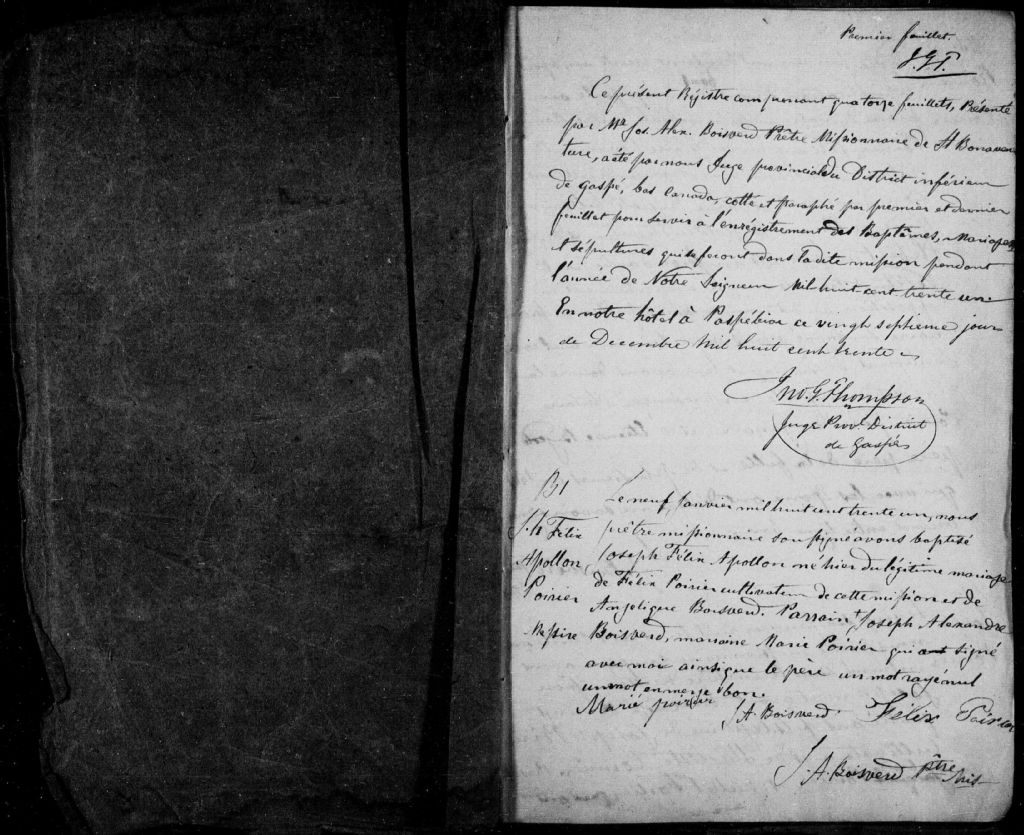 Premier feuillet.
J.G.T.
Ce présent Régistre comprenant quatorze feuillets, Présenté
par Mre Jos. Alex. Boisverd Prêtre Missionnaire de St Bonaven
ture, a été par nous Juge provincial du District inférieur
de Gaspé, bas Canada, cotté et paraphé par premier et dernier
feuillet pour servir à l'enrégistrement des Baptêmes, Mariages
et sépultures qui se feront dans la dite mission pendant
l'année de Notre Seigneur Mil huit cent trente un.
En notre hôtel à Paspébiac ce vingh septieme jour
de Decembre Mil huit cent trente
Jno. G. Thompson
Juge Prov. District
de Gaspé
B1
J.h Félix
Apollon,
Poirier
Le neuf Janvier mil huit cent trente un, nous
prêtre missionnaire soussigné avons baptisé
Joseph Félix Apollon né hier du légitime mariage
de Félix Poirier cultivateur de cette mission et de
Anjelique Boisverd. Parrain Joseph Alexandre
Messire
Boisverd, marraine Marie Poirier qui ont signé
avec moi ainsi que le père un mot rayé nul
un mot en marge bon.
Marié poirier
J A. Boisverd
Félix Poirier
J. A. Boisverd Ptre
Mis